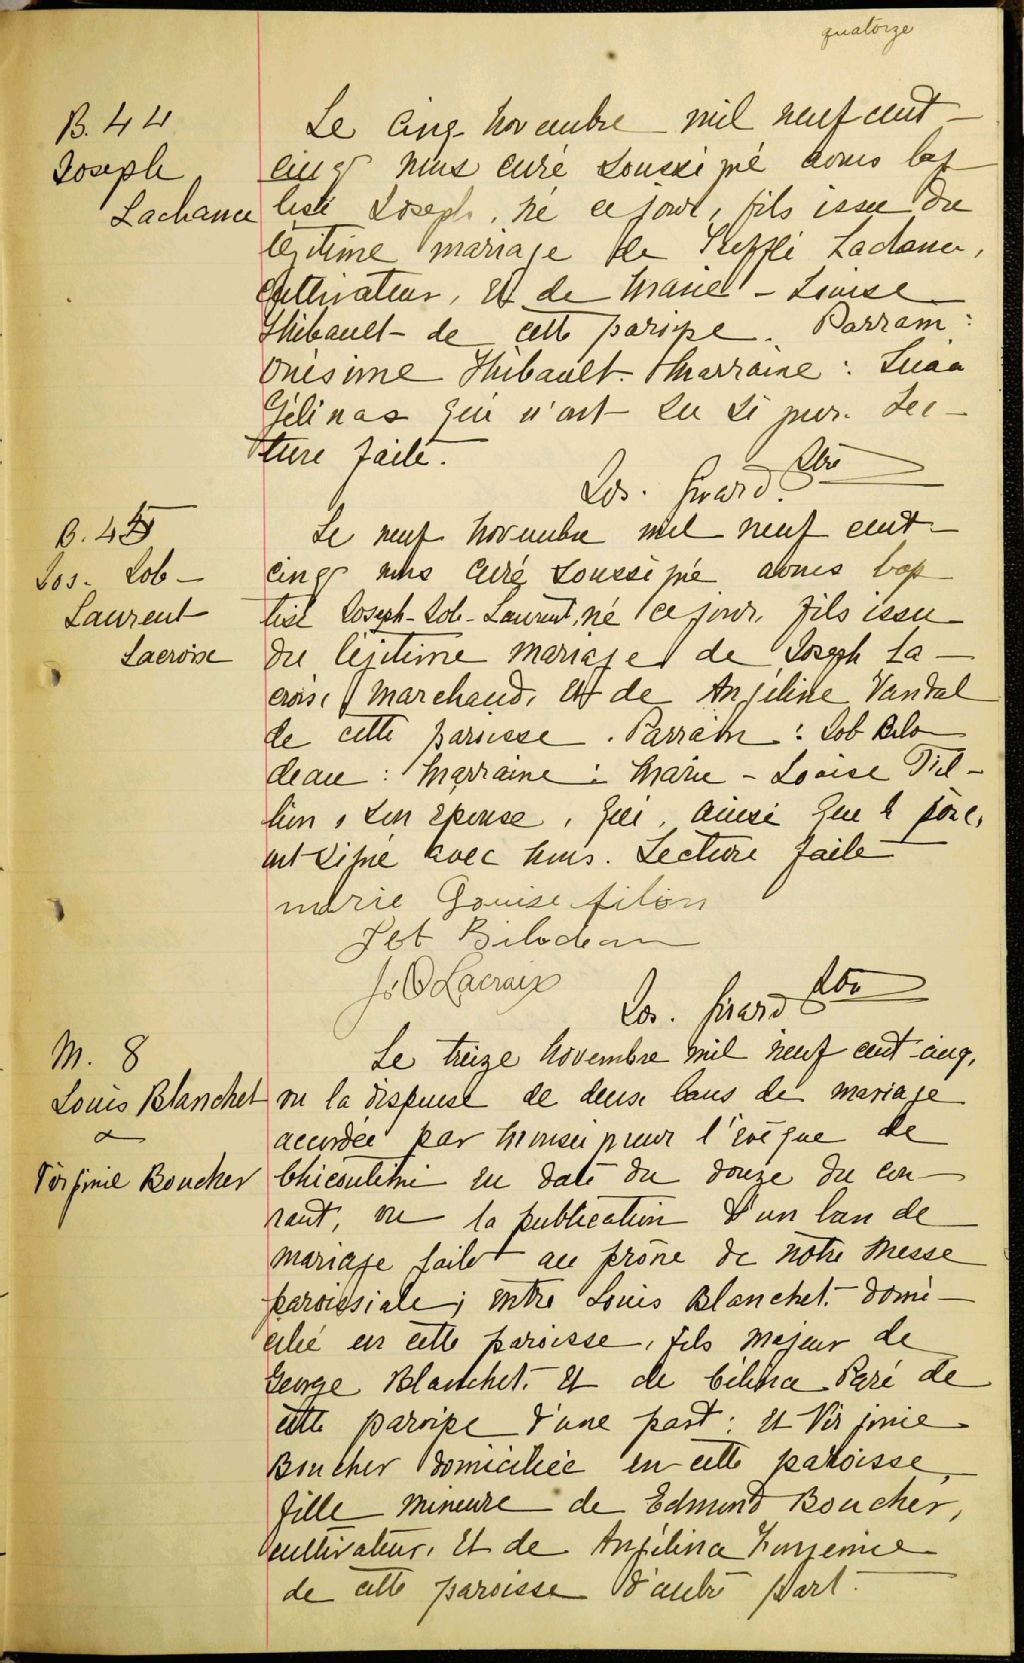 quatorze
B. 44
Joseph
Lachance
Le cinq novembre mil neuf cent
cinq nous curé soussigné avons bap
tisé Joseph, né ce jour, fils issu du
légitime mariage de Lachance,
cultivateur, et de Marie-Louise
Thibault de cette paroisse. Parrain:
Onésime Thibault. Marraine:
Gélinas qui n'ont su signer. Lec-
ture faite.
Jos. Girard. Ptre
B. 45
Jos- Job-
Laurent
Lacroix
Le neuf novembre mil neuf cent
cinq nous curé soussigné avons bap
tisé Joseph-Job-Laurent, né ce jour, fils issu
du légitime mariage de Joseph La-
croix, marchand, et de Angéline Vandal
de cette paroisse. Parrain: Job Bilo
deau: Marraine: Marie-Louise Fil-
lion, son épouse, qui, ainsi que le père,
ont signé avec nous. Lecture faite
marie Louise filion
Job Bilodeau
J. O Lacroix
Jos. Girard Ptre
M. 8
Louis Blanchet
&
Virginie Boucher
Le treize novembre mil neuf cent-cinq,
vu la dispense de deux bans de mariage
accordée par Monseigneur l'évêque de
Chicoutimi en date du douze du cou-
rant, vu la publication d'un ban de
mariage faite au prône de notre Messe
paroissiale; entre Louis Blanchet. domi-
cilié en cette paroisse, fils majeur de
George Blanchet. et de Célina Paré de
cette paroisse d'une part: et Virginie
Boucher domiciliée en cette paroisse,
fille mineure de Edmond Boucher,
cultivateur, et de Angélina
de cette paroisse d'autre part.